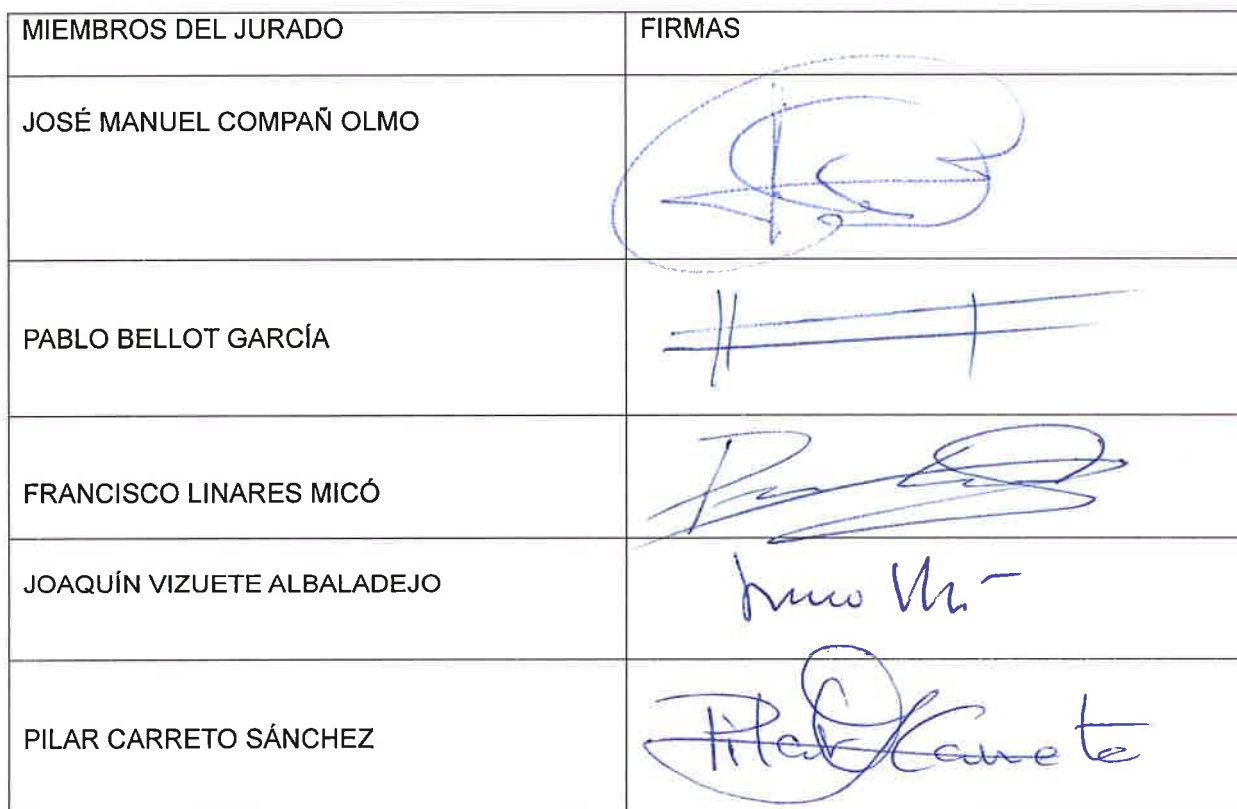 MIEMBROS DEL JURADO FIRMAS
JOSÉ MANUEL COMPAÑ OLMO
PABLO BELLOT GARCÍA
FRANCISCO LINARES MICÓ
JOAQUÍN VIZUETE ALBALADEJO
PILAR CARRETO SÁNCHEZ Pilar Carreto